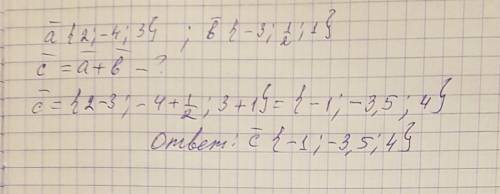 a̅ {2; -4; 3} ; b̅ {-3; 1/2; 1}
c̅ = a̅ + b̅ - ?
c̅ = {2-3; -4+1/2; 3+1} = {-1; -3,5; 4}
Ответ: c̅ {-1; -3,5; 4}